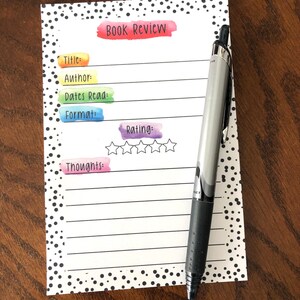 Book Review
Title:
Author:
Dates Read:
Format:
Rating:
Thoughts: